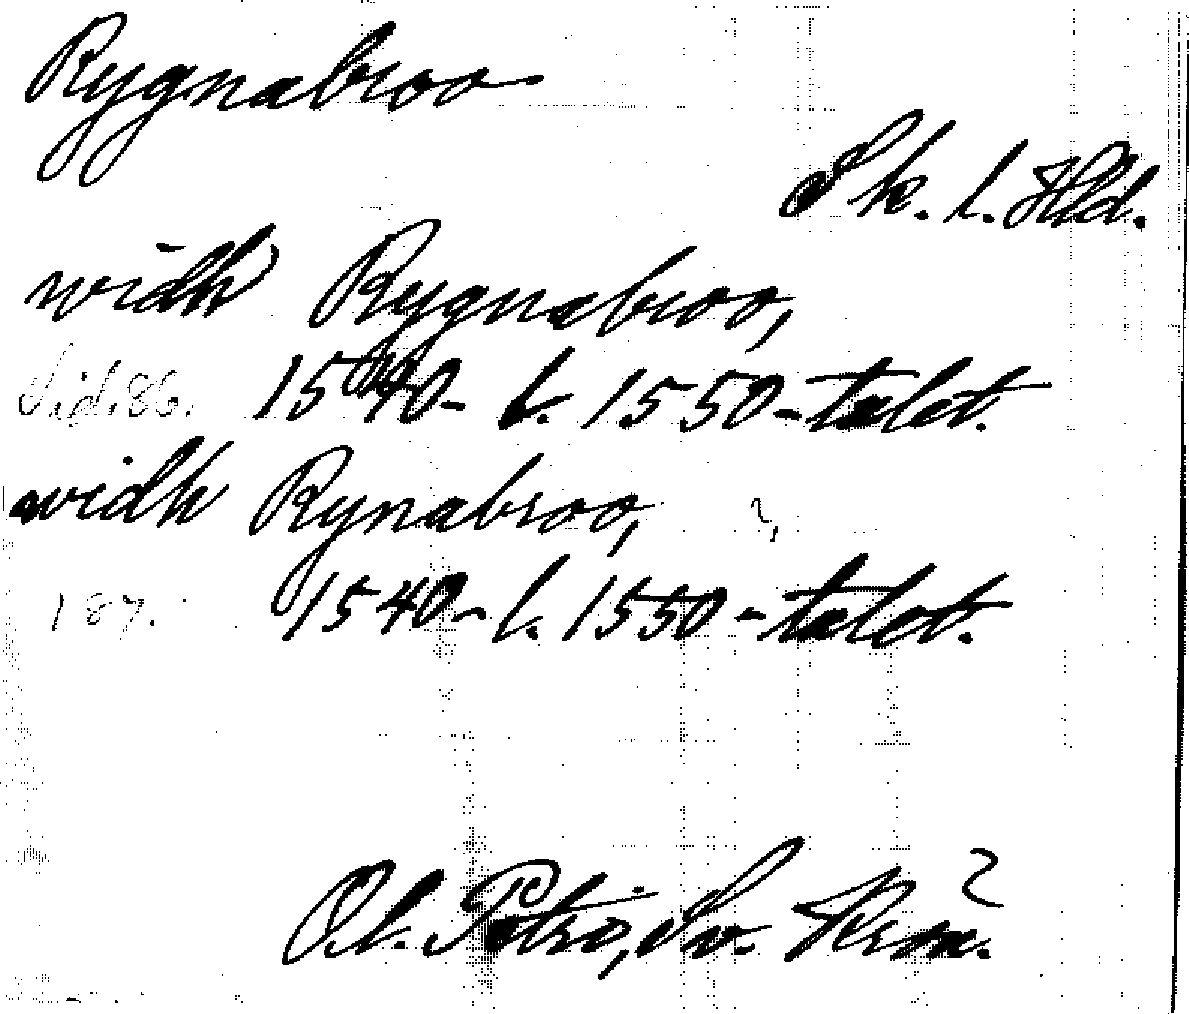 Rygnabroo
Sk. l. Hld.
widh Rygnabroo,
Sid. 86. 1540- l. 1550-talet.
widh Rynabroo,
187. 1540- l. 1550-talet.
Ol. Petro, Sv. Krön.